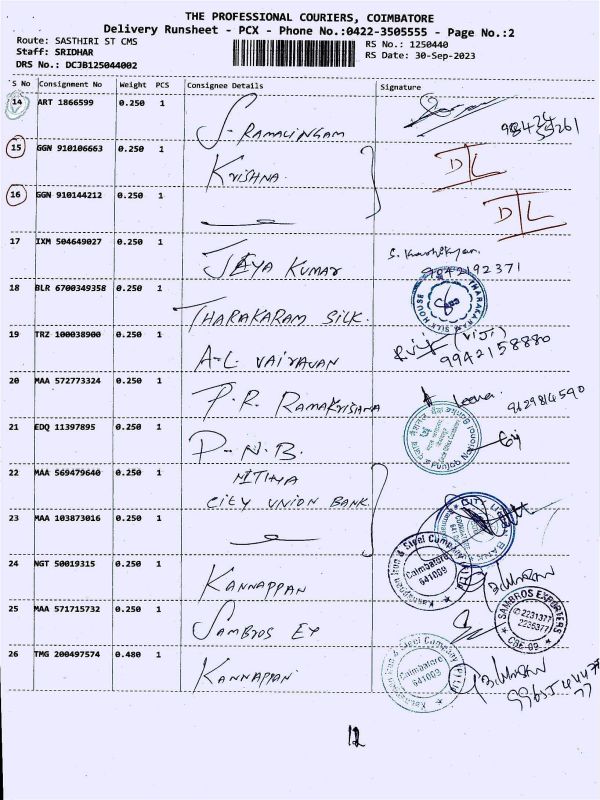 THE PROFESSIONAL COURIERS, COIMBATORE
Delivery Runsheet - PCX - Phone No.:0422-3505555 - Page No.:2
Route: SASTHIRI ST CMS
RS No.: 1250440
Staff: SRIDHAR
RS Date: 30-Sep-2023
DRS No.: DCJB125044002
S No Consignment No Weight PCS Consignee Details Signature
14 ART 1866599 0.250 1 S-RAMALINGAM
15 GGN 910106663 0.250 1 KRISHNA D/L
16 GGN 910144212 0.250 1 D/L
17 IXM 504649027 0.250 1 JEYA KUMAR S. Karthikeyan 9942192371
18 BLR 6700349358 0.250 1 THARAKARAM SILK. THARAKARAM SILK HOUSE
19 TRZ 100038900 0.250 1 A-L VAIRAVAN (VIJI) 9942158880
20 MAA 572773324 0.250 1 P.R. RAMAKRISHNA Leena 9629814590
21 EDQ 11397895 0.250 1 P-N.B. Punjab National Bank
22 MAA 569479640 0.250 1 NITHYA
CITY UNION BANK CITY UNION BANK
23 MAA 103873016 0.250 1
24 NGT 50019315 0.250 1 KANNAPPAN Kannappan Iron & Steel Company Coimbatore 641009
25 MAA 571715732 0.250 1 SAMBROS EX SAMBROS EXPORTERS 2231377 2235377 CBE-09
26 TMG 200497574 0.480 1 KANNAPPAN Kannappan Iron & Steel Company Coimbatore 641009
12